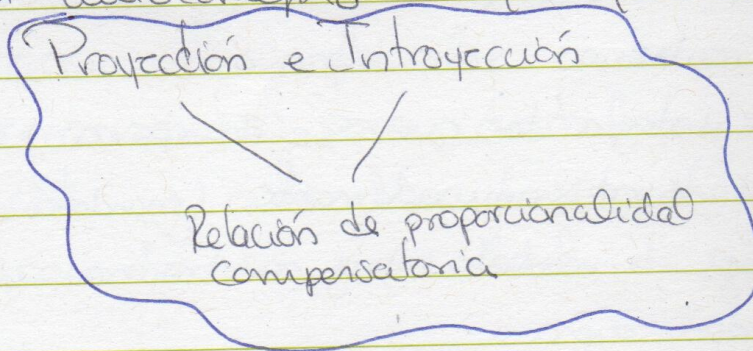 Proyección e Introyección
Relación de proporcionalidad
compensatoria